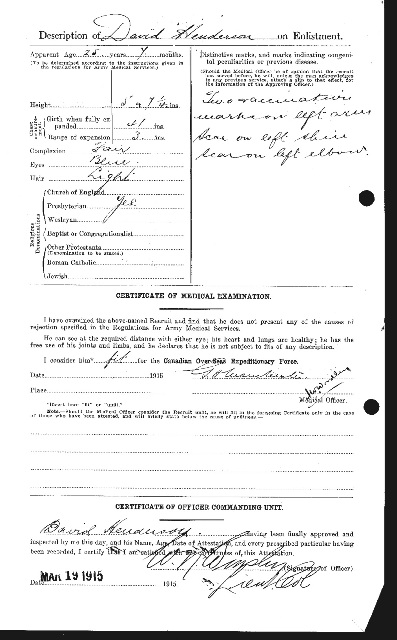 Description of David Henderson on Enlistment.
Apparent Age 25 years 9 months.
(To be determined according to the instructions given in the regulations for Army Medical Services.)
Height 5 ft. 9½ ins.
Chest measurement
Girth when fully expanded 41 ins.
Range of expansion 3 ins.
Complexion Fair
Eyes Blue
Hair Light
Religious Denominations
Church of England
Presbyterian Yes
Wesleyan
Baptist or Congregationalist
Other Protestants
(Denomination to be stated.)
Roman Catholic
Jewish
Distinctive marks, and marks indicating congenital peculiarities or previous disease.
(Should the Medical Officer be of opinion that the recruit has served before, he will, unless the man acknowledges to any previous service, attach a slip to that effect, for the information of the Approving Officer.)
Two vaccination
marks on left arm
Scar on left shin
Scar on left elbow.
CERTIFICATE OF MEDICAL EXAMINATION.
I have examined the above-named Recruit and find that he does not present any of the causes of
rejection specified in the Regulations for Army Medical Services.
He can see at the required distance with either eye; his heart and lungs are healthy; he has the
free use of his joints and limbs, and he declares that he is not subject to fits of any description.
I consider him* fit for the Canadian Over-Seas Expeditionary Force.
Date 1915
Place
Medical Officer.
*Insert here "fit" or "unfit."
Note.—Should the Medical Officer consider the Recruit unfit, he will fill in the foregoing Certificate only in the case
of those who have been attested, and will briefly state below the cause of unfitness:—
CERTIFICATE OF OFFICER COMMANDING UNIT.
David Henderson having been finally approved and
inspected by me this day, and his Name, Age, Date of Attestation, and every prescribed particular having
been recorded, I certify that I am satisfied with the correctness of this Attestation.
(Signature of Officer)
Lieut Col
Date MAR 19 1915 1915